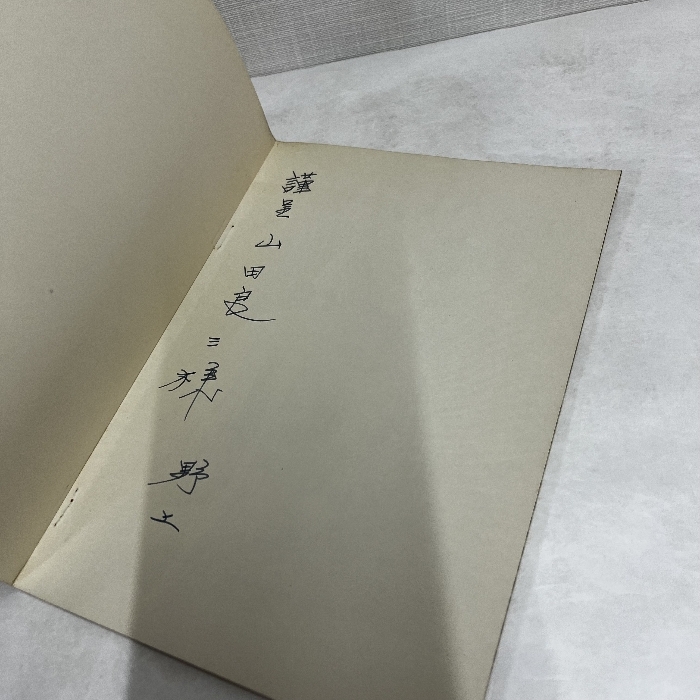 謹呈 山田良三様 野土